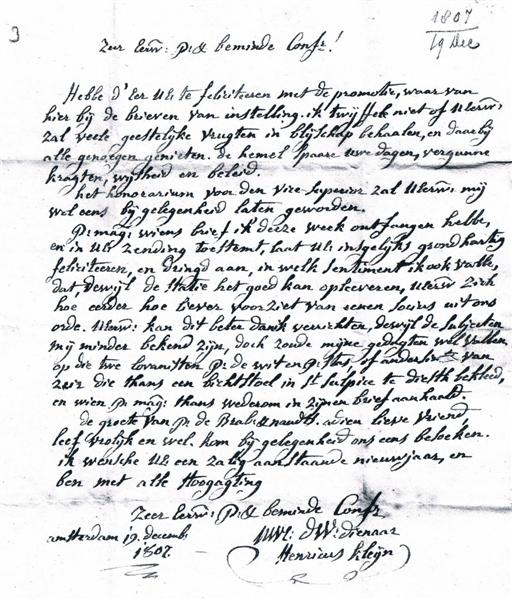 3
1807
19 Dec
Zeer Eerw: P: & beminde Confr!
Hebbe d'Eer UE: te feliciteeren met de promotie, waar van
hier bij de brieven van instelling. ik twijffele niet of UEerw:
zal veele geestelijke vrugten in blijschap behaalen, en daar bij
alle genoegen genieten. de hemel spaare uwe dagen, vergunne
kragten, wijsheid en beleid.
het honorarium voor den vice-superior zal UEerw: mij
wel eens bij gelegenheid laten geworden.
P: mag: wiens brief ik deeze week ontfangen hebbe,
en in UE: zending toestemt, laat UE: insgelijks grondhartig
feliciteeren, en dringd aan, in welk sentiment ik ook valle,
dat, dewijl de Statie het goed kan opleeveren, UEerw zich
hoe eerder hoe liever voorziet van eenen socius uit ons
orde. UEerw: kan dit beter dan ik verrichten, dewijl de subjecten
mij minder bekend zijn, doch zoude mijne gedagten wel vallen
op die twe Lovanisten P: de wit en P: of anders van
zeer die thans een bichtstoel in St Sulpice te diesth bekleed,
en wien P: mag: thans wederom in zijnen brief aanhaald.
de groete van P: de Brab: adieu lieve vriend,
leef vrolijk en wel. kom bij gelegenheid ons eens besoeken.
ik wensche UE een zalig aanstaande nieuwjaar, en
ben met alle Hoogagting
Zeer Eerw: P: & beminde Confr
Amsterdam 19 decemb
1807.
UWE: dW: dienaar
Henricus Kleijn